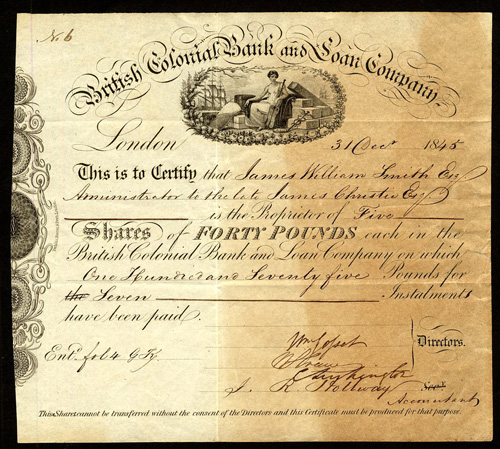 No. 6
British Colonial Bank and Loan Company.
London 31 Decr. 1845
This is to Certify that James William Smith Esq
Administrator to the late James Christie Esq
is the Proprietor of Five
Shares of FORTY POUNDS each in the
British Colonial Bank and Loan Company on which
One Hundred and Seventy five Pounds for
the Seven Instalments
have been paid.
Directors.
Entd. fol 4
Accountant
This Share cannot be transferred without the consent of the Directors and this Certificate must be produced for that purpose.